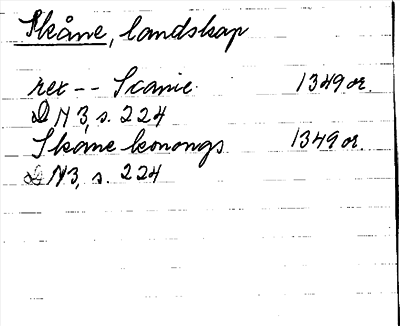 Skåne, landskap
rex -- Scanie 1349 or.
DN 3, s. 224
Skane konongs 1349 or.
DN3, s. 224